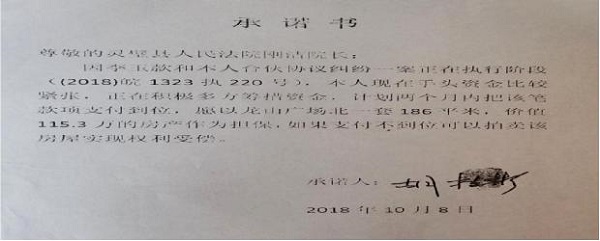 承诺书
尊敬的灵璧县人民法院刚洁院长：
因李玉款和本人合伙协议纠纷一案正在执行阶段
（(2018)皖 1323 执 220 号），本人现在手头资金比较
紧张，正在积极多方筹措资金，计划两个月内把该笔
款项支付到位，愿以龙山广场北一套 186 平米，价值
115.3 万的房产作为担保，如果支付不到位可以拍卖该
房屋实现权利受偿。
承诺人：胡
2018 年 10 月 8 日